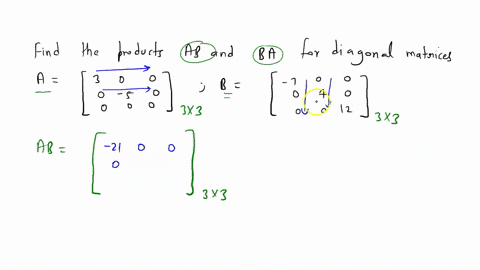 Find the products AB and BA for diagonal matrices
A = [ 3 0 0 ; B = [ -7 0 0
0 -5 0 0 4 0
0 0 0 ] 3×3 0 0 12 ] 3×3
AB = [ -21 0 0
0
] 3×3